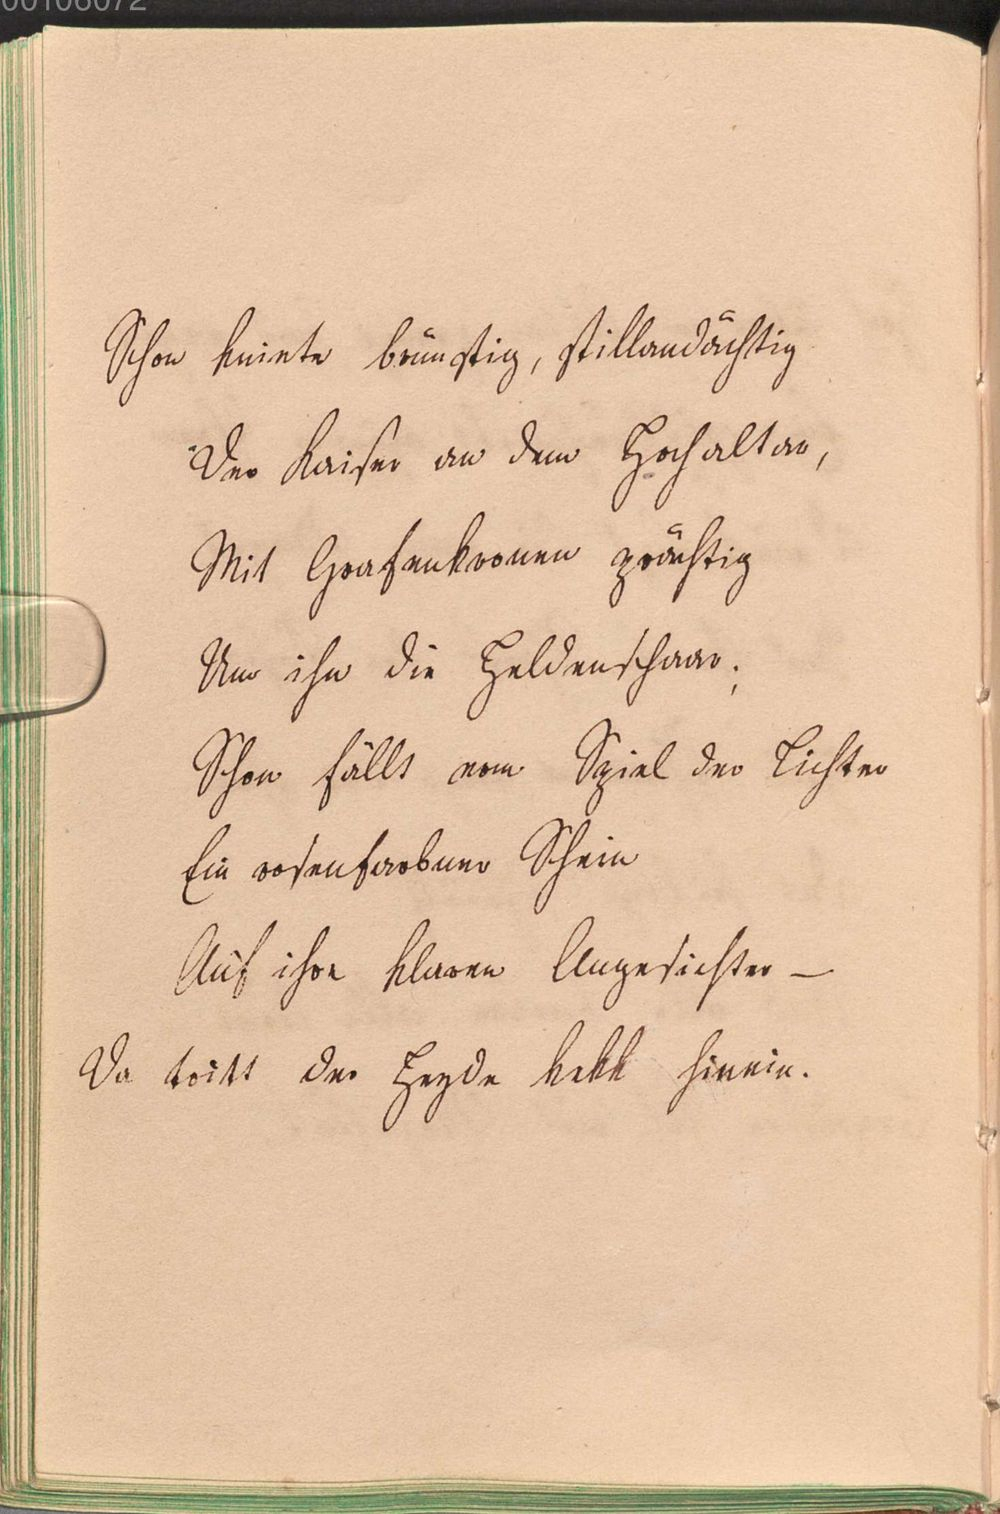 00106072
Schon kniete brünstig, stillandächtig
Der Kaiser an dem Hochaltar,
Mit Grafenkronen prächtig
Um ihn die Heldenschaar;
Schon fällt vom Spiel der Lichter
Ein rosenfarbner Schein
Auf ihre klaren Angesichter –
Da tritt der Heyde kekk hinein.